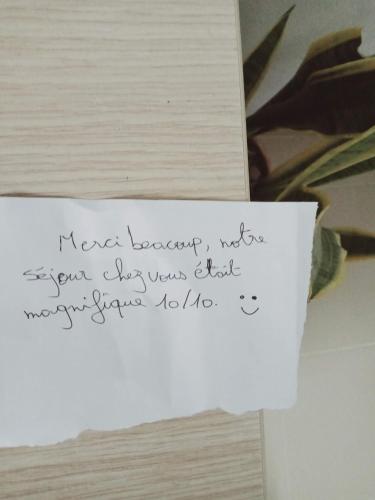 Merci beacoup, notre
séjour chez vous était
magnifique 10/10. :)